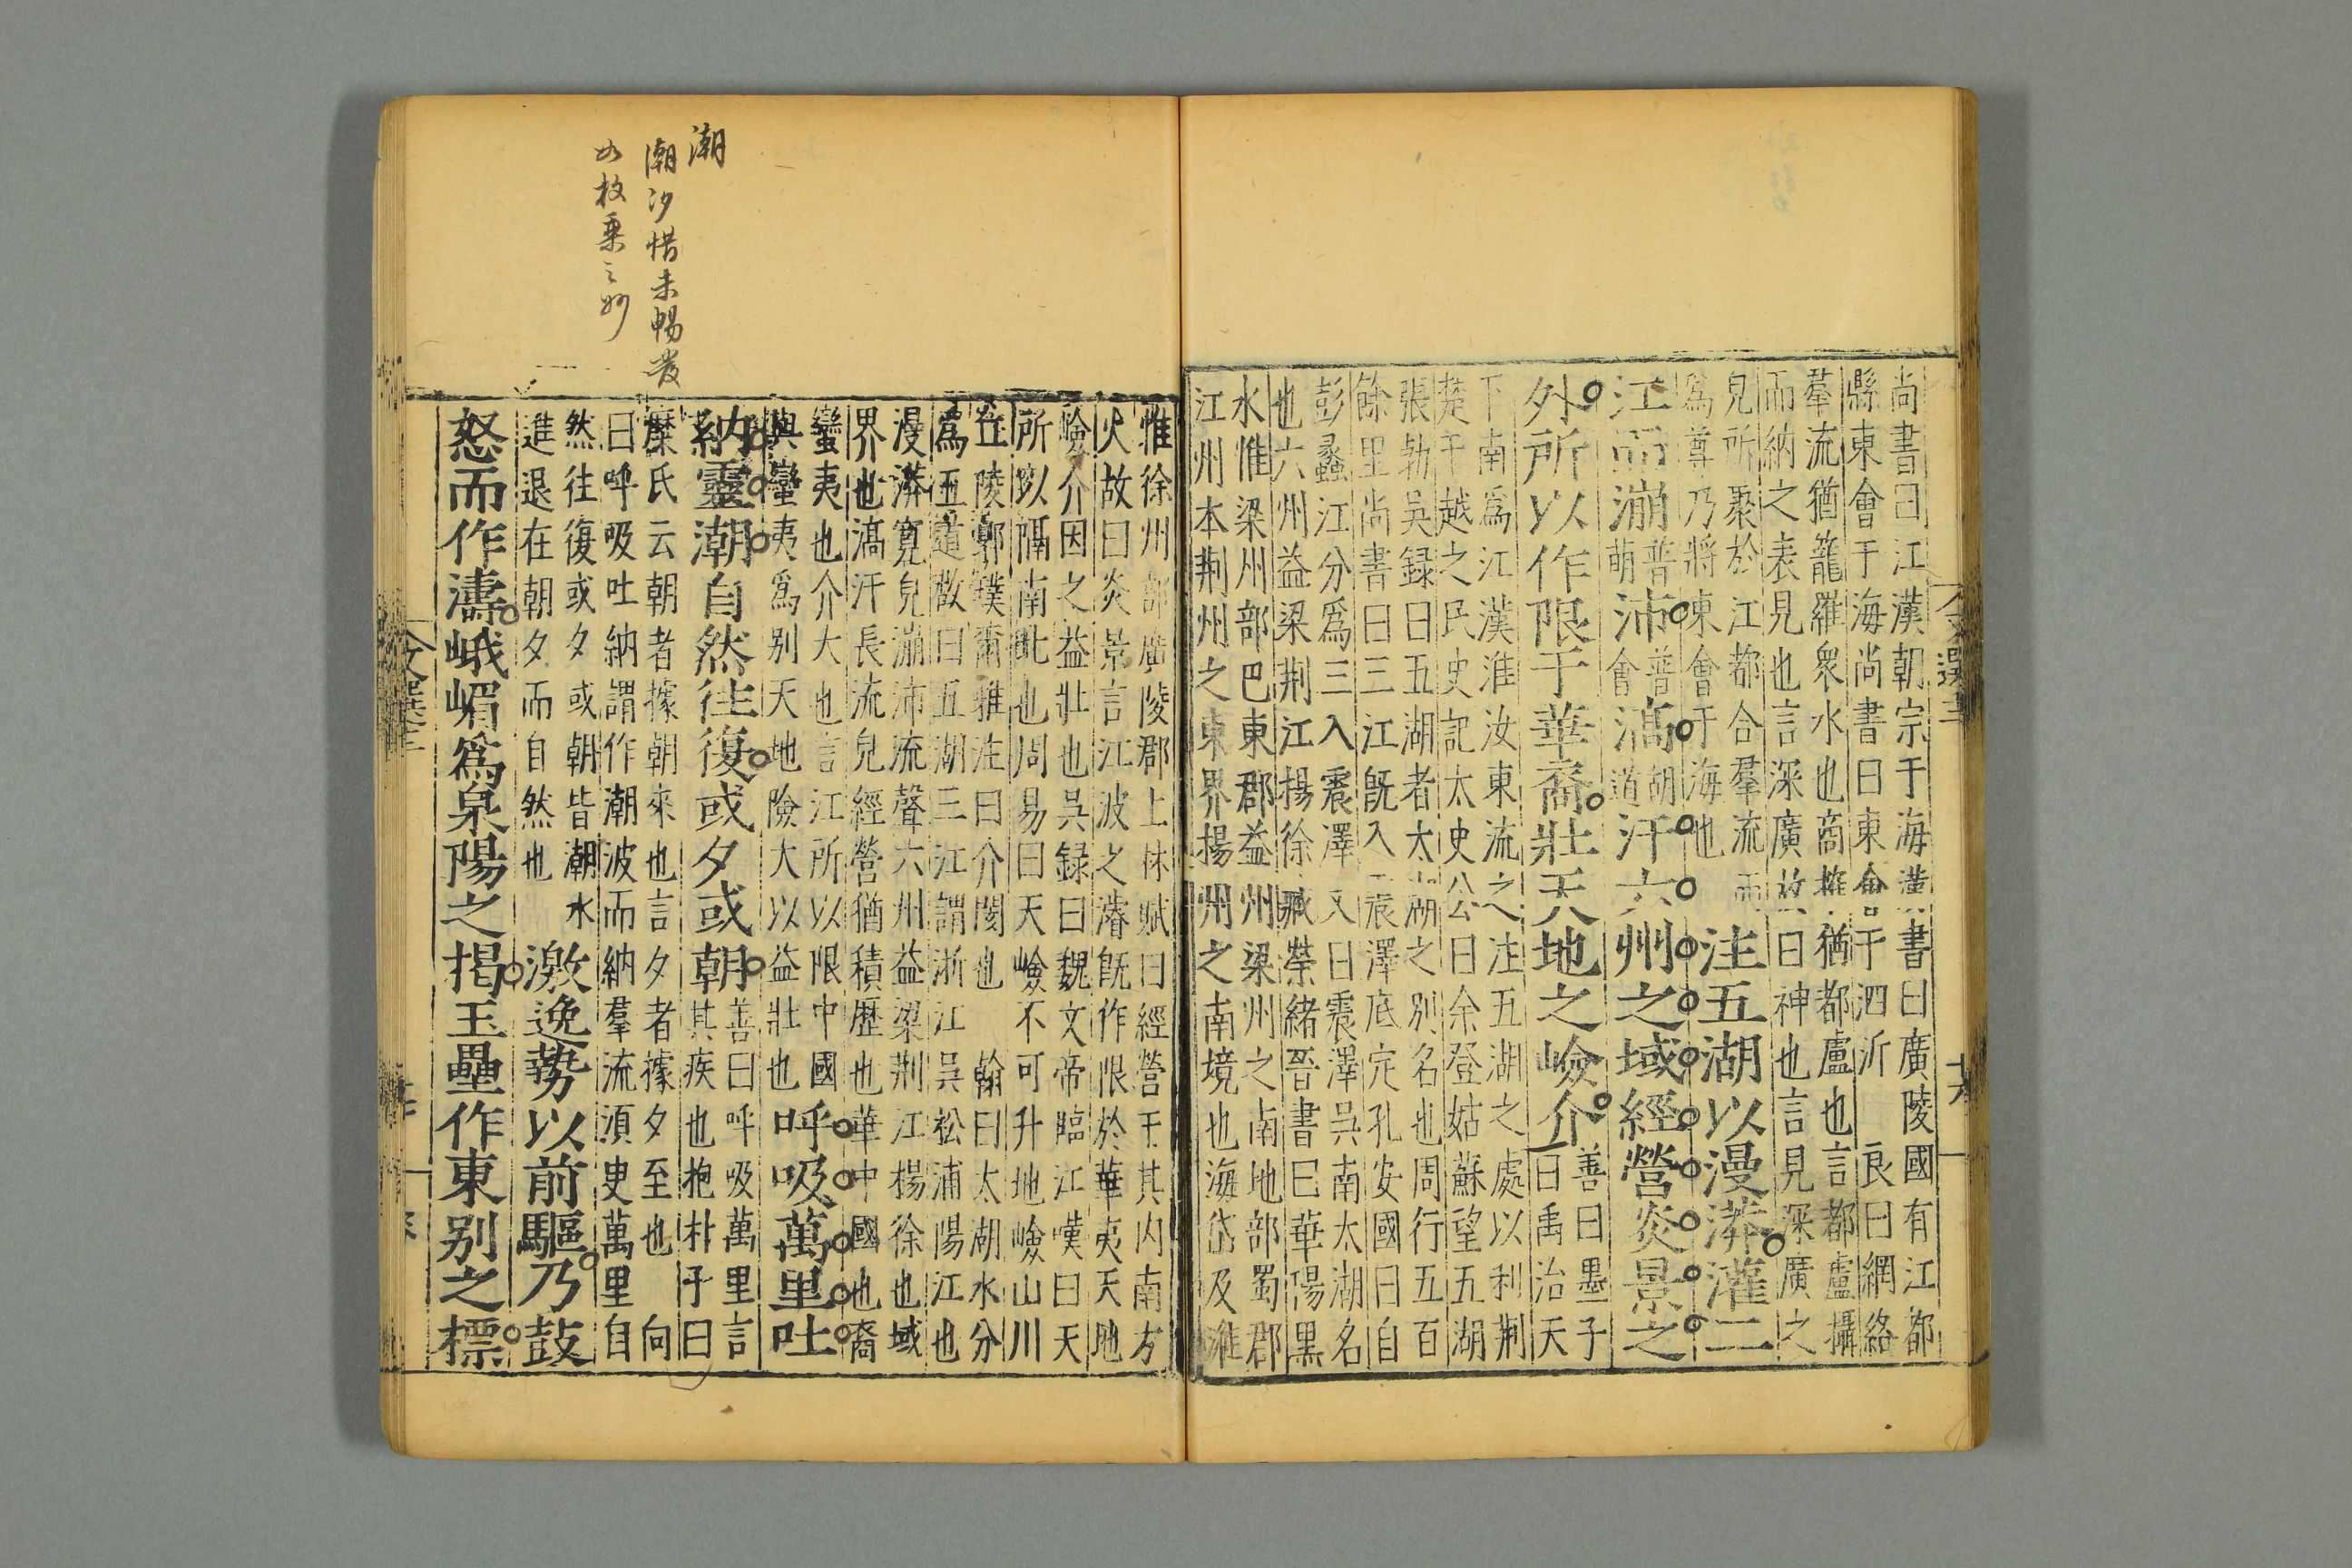 尚書曰江漢朝宗于海漢書曰廣陵國有江都
縣東會于海尚書曰東會于泗沂 良曰網絡
羣流猶籠羅衆水也商搉猶都盧也言都盧攝
而納之表見也言深廣故曰神也言見深廣之
皃所聚於江都合羣流而
為尊乃將東會于海也
注五湖以漫漭灌二
江而漰普萌沛普會滈胡道汗六州之域經營炎景之
外所以作限于華裔壯天地之嶮介善曰墨子
曰禹治天
下南為江漢淮汝東流之注五湖之處以利荆
楚干越之民史記太史公曰余登姑蘇望五湖
張勃吳録曰五湖者太湖之别名也周行五百
餘里尚書曰三江旣入震澤底定孔安國曰自
彭蠡江分爲三入震澤又曰震澤吳南太湖名
也六州益梁荆江揚徐臧榮緒晉書曰華陽黒
水惟梁州部巴東郡益州梁州之南地部蜀郡
江州本荆州之東界揚州之南境也海岱及淮
文選三
十六
潮
潮汐惜未暢發
如枚乗之妙
惟徐州部廣陵郡上林賦曰經營于其内南方
火故曰炎景言江波之濬旣作限於華夷天地
嶮介因之益壯也吳録曰魏文帝臨江嘆曰天
所以隔南北也周易曰天嶮不可升地嶮山川
丘陵郭璞爾雅注曰介閡也 翰曰太湖水分
爲五道故曰五湖三江謂浙江吳松浦陽江也
漫漭寛皃漰沛流聲六州益梁荆江揚徐也域
界也滈汗長流皃經營猶積歷也華中國也裔
蠻夷也介大也言江所以限中國
與蠻夷爲别天地險大以益壯也
呼吸萬里吐
納靈潮自然往復或夕或朝善曰呼吸萬里言
其疾也抱朴子曰
麋氏云朝者據朝來也言夕者據夕至也 向
曰呼吸吐納謂作潮波而納羣流湏史萬里自
然往復或夕或朝皆潮水
進退在朝夕而自然也
激逸勢以前驅乃鼓
怒而作濤峨嵋爲泉陽之揭玉壘作東别之標
文選三